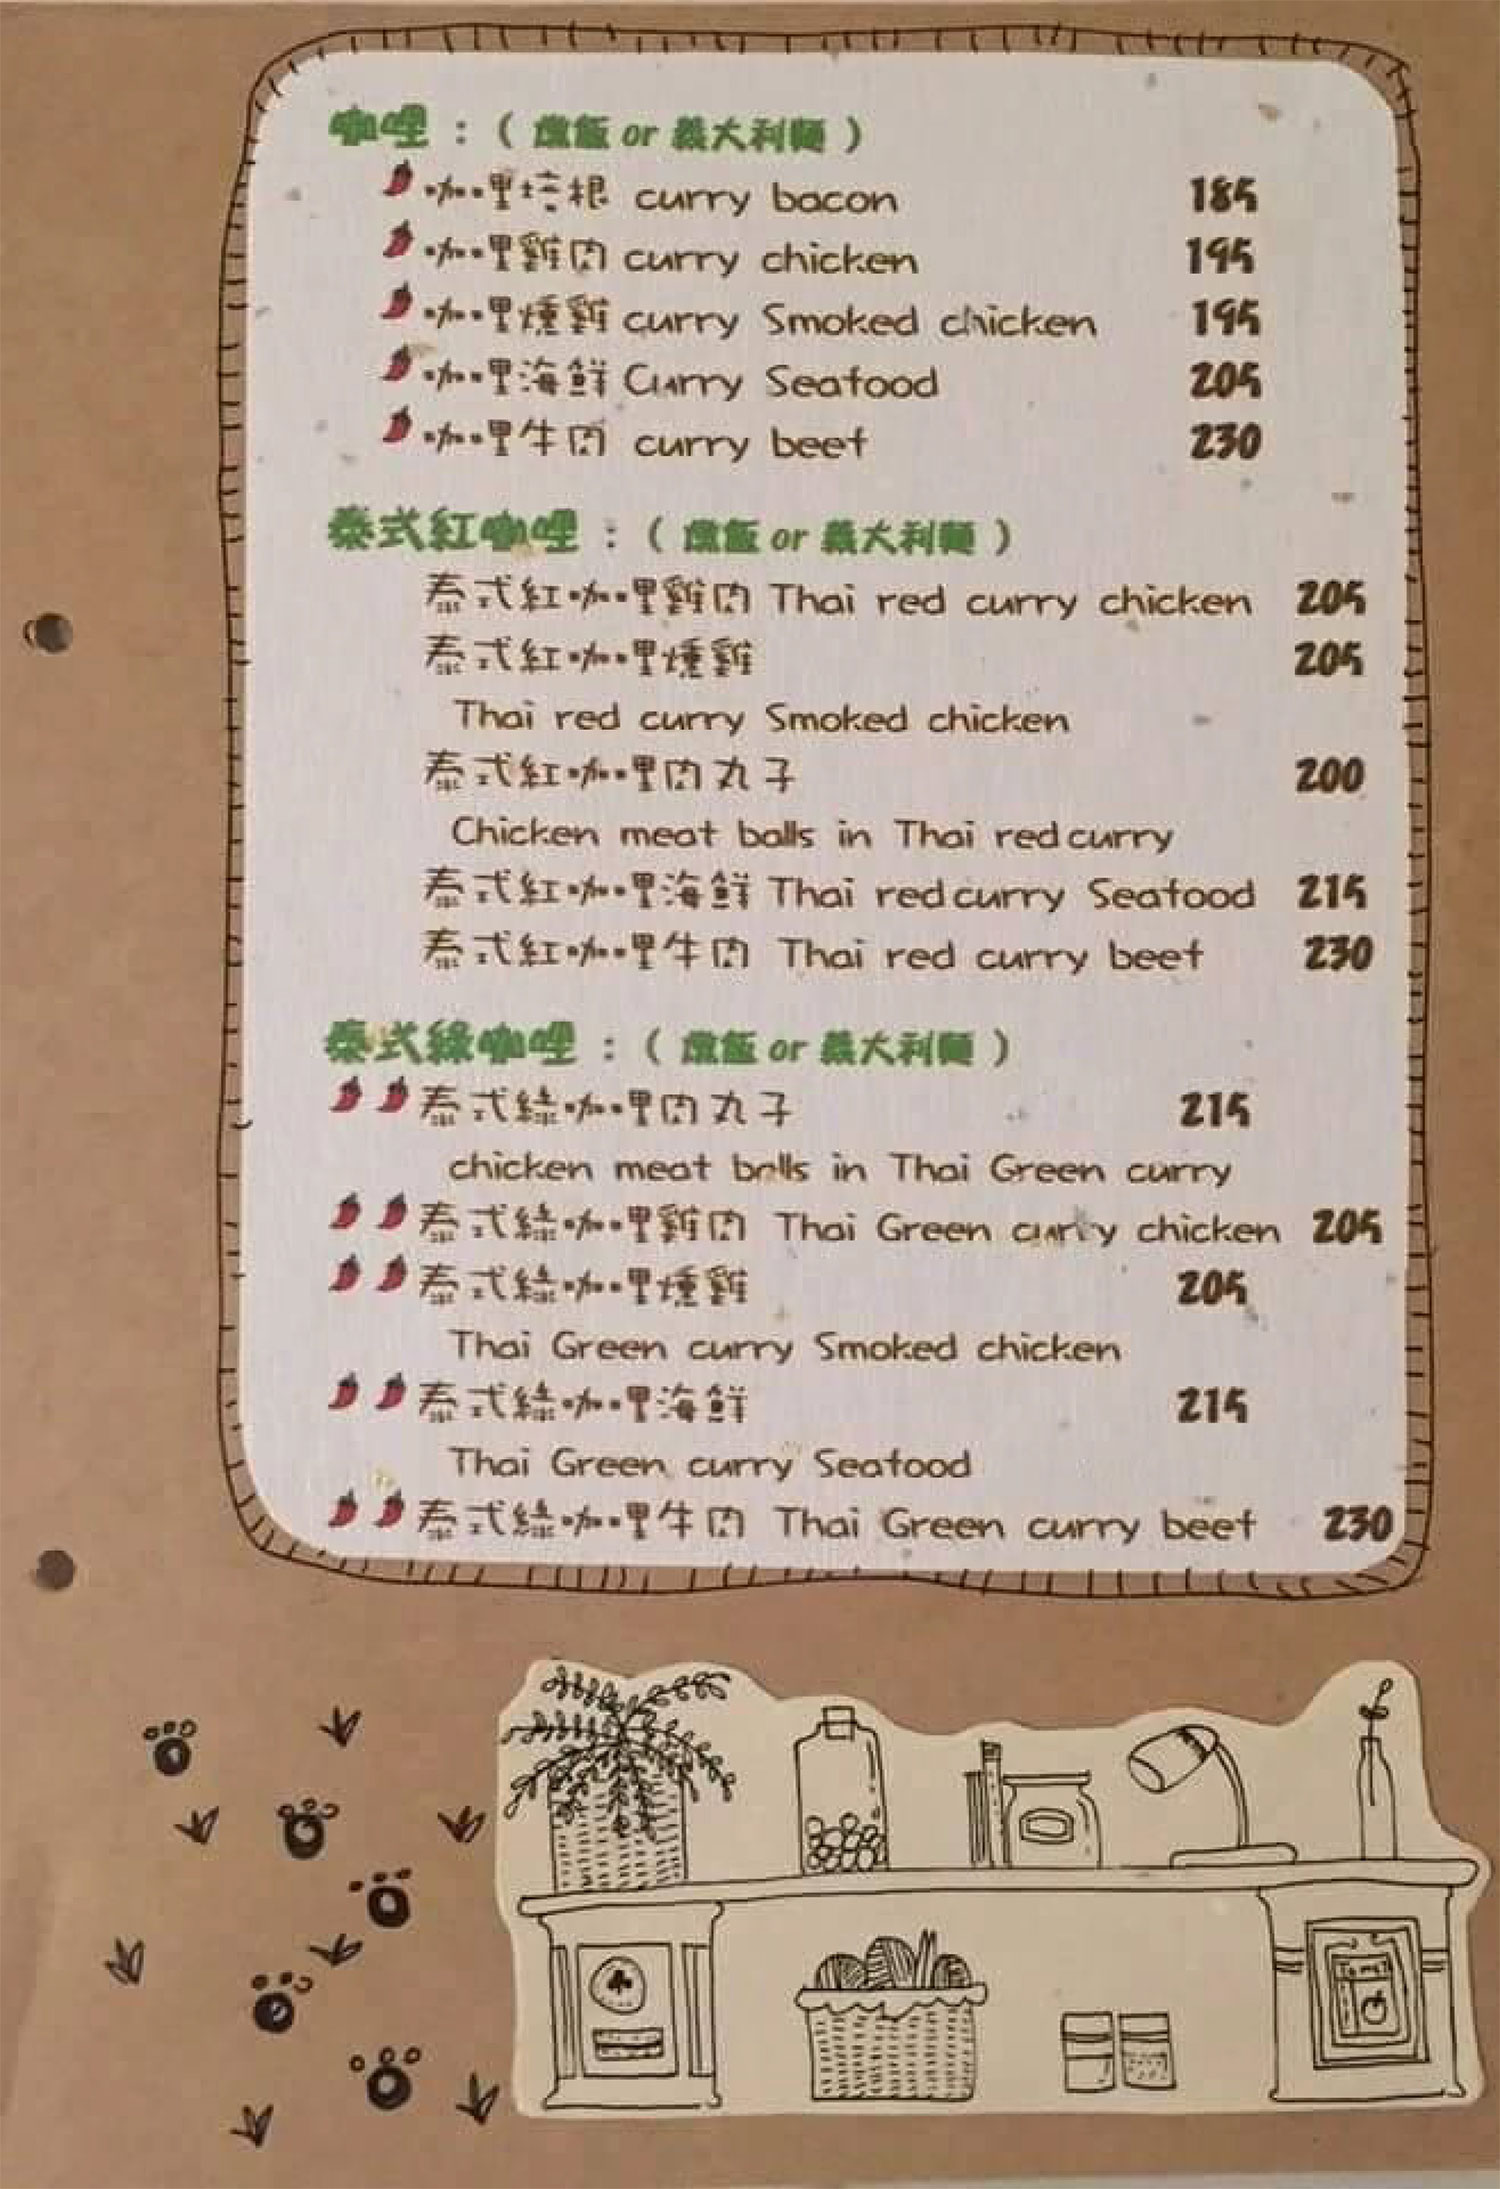 咖哩：( 燉飯 or 義大利麵 )
咖哩培根 curry bacon 185
咖哩雞肉 curry chicken 195
咖哩燻雞 curry Smoked chicken 195
咖哩海鮮 Curry Seafood 205
咖哩牛肉 curry beef 230
泰式紅咖哩：( 燉飯 or 義大利麵 )
泰式紅咖哩雞肉 Thai red curry chicken 205
泰式紅咖哩燻雞 205
Thai red curry Smoked chicken
泰式紅咖哩肉丸子 200
Chicken meat balls in Thai red curry
泰式紅咖哩海鮮 Thai red curry Seafood 215
泰式紅咖哩牛肉 Thai red curry beef 230
泰式綠咖哩：( 燉飯 or 義大利麵 )
泰式綠咖哩肉丸子 215
chicken meat balls in Thai Green curry
泰式綠咖哩雞肉 Thai Green curry chicken 205
泰式綠咖哩燻雞 205
Thai Green curry Smoked chicken
泰式綠咖哩海鮮 215
Thai Green curry Seafood
泰式綠咖哩牛肉 Thai Green curry beef 230